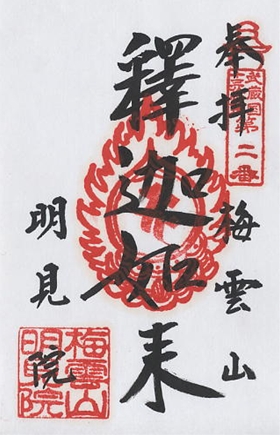 奉拝 梅雲山
武蔵国
第
二番
釋迦如来
明見院
梅雲山
明見院